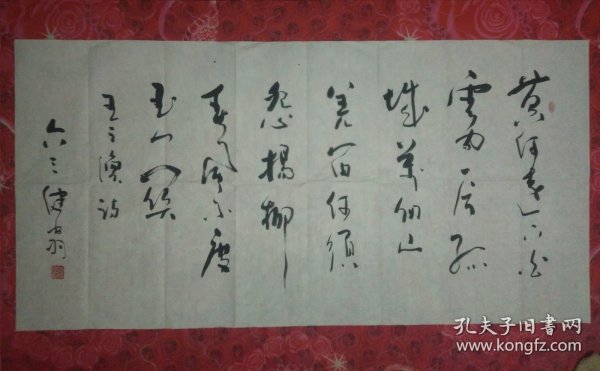 黄河遠上白
雲间一片孤
城萬仞山
羌笛何須
怨楊柳
春风不度
玉门関
王之涣诗
六三健
孔夫子旧书网
www.kongfz.com